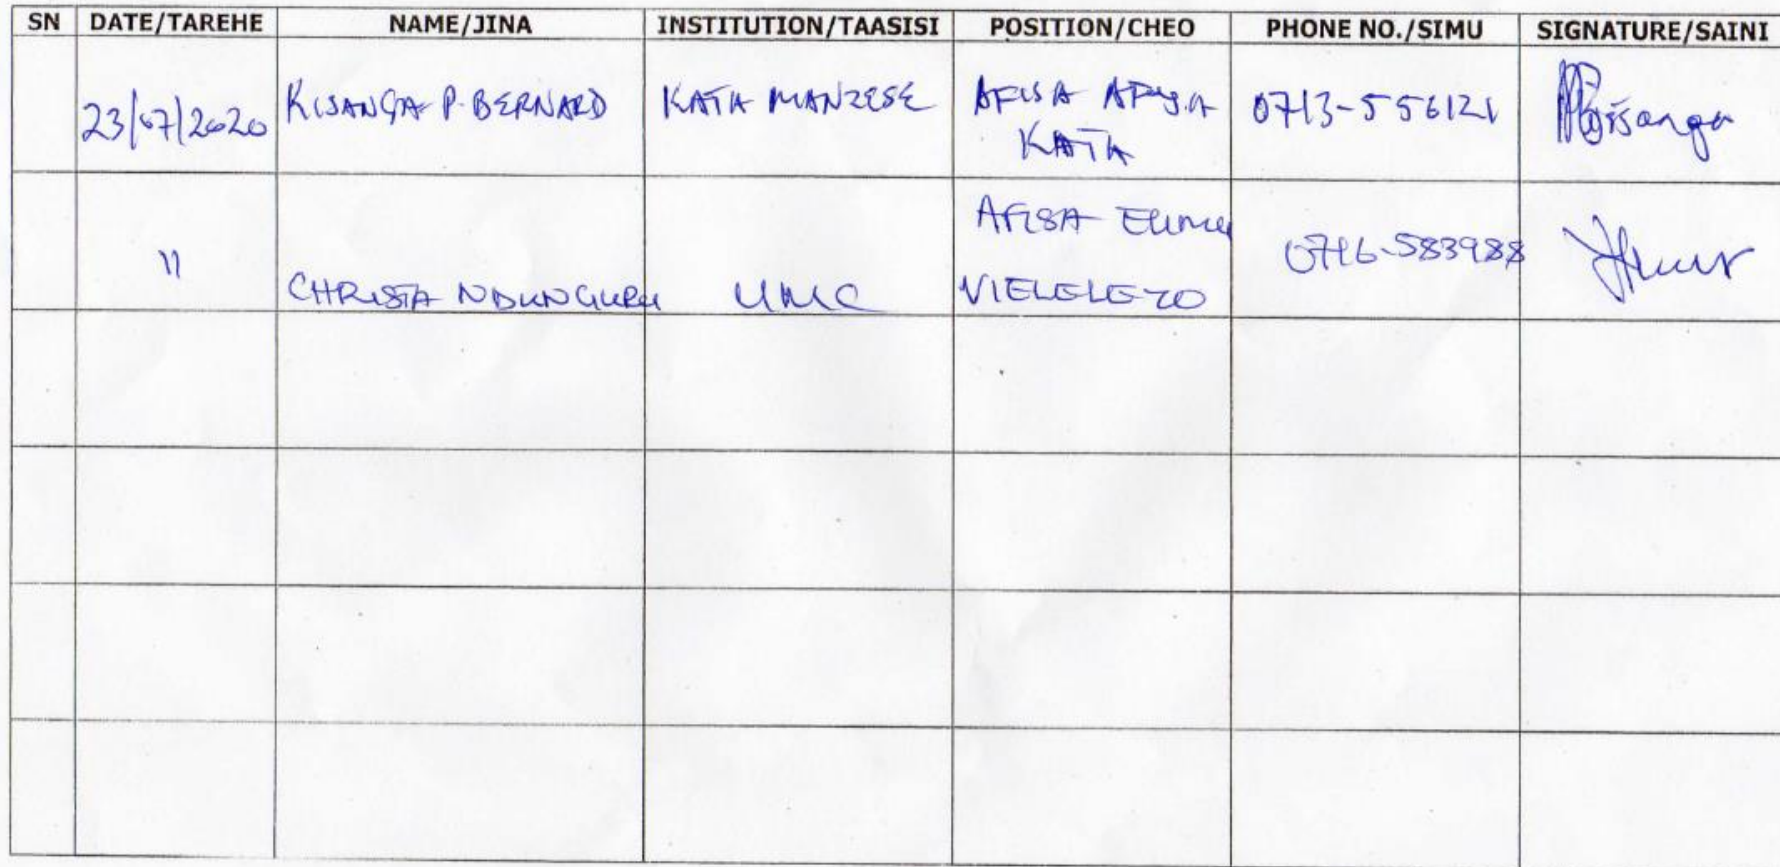 SN DATE/TAREHE NAME/JINA INSTITUTION/TAASISI POSITION/CHEO PHONE NO./SIMU SIGNATURE/SAINI
23/07/2020 KISANGA P. BERNARD KATA MANZESE AFISA AFYA 0713-556121 Kisanga
KATA
AFISA ELIMU
" CHRISTA NDUNGURU UMC VIELELEZO 0716-583988